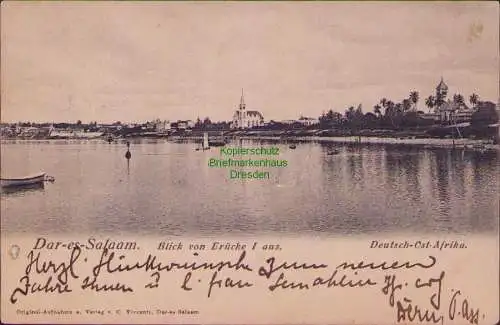 Kopierschutz
Briefmarkenhaus
Dresden
Dar-es-Salaam. Blick von Brücke I aus. Deutsch-Ost-Afrika.
Herzl. Glückwünsche zum neuen
Jahre Ihnen u l. frau Gemahlin
Original-Aufnahme u. Verlag v. C. Vincenti, Dar-es-Salaam